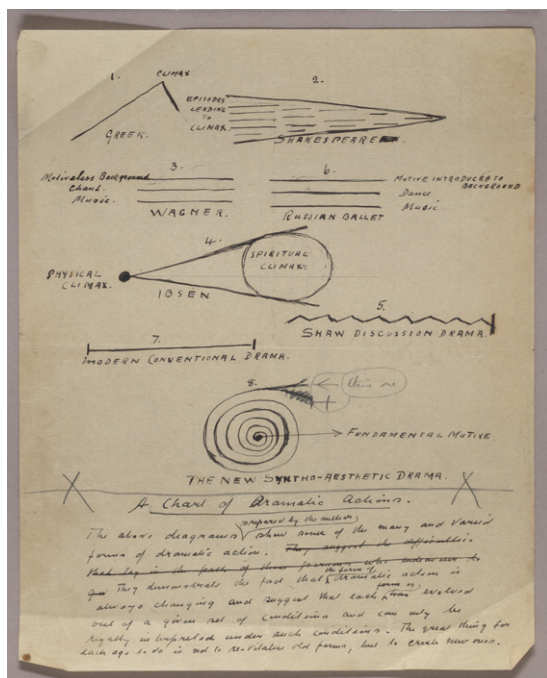 1.
CLIMAX
GREEK.
2.
EPISODES
LEADING
TO
CLIMAX.
SHAKESPERRE
3.
Motiveless Background
Chant.
Music.
WAGNER.
6.
MOTIVE INTRODUCED TO
BACKGROUND
Dance
Music
RUSSIAN BALLET
4.
PHYSICAL
CLIMAX.
SPIRITUAL
CLIMAX.
IBSEN
5.
SHAW DISCUSSION DRAMA.
7.
MODERN CONVENTIONAL DRAMA.
8.
FUNDAMENTAL MOTIVE.
THE NEW SYNTHO-AESTHETIC DRAMA.
A Chart of Dramatic Actions.
prepared by the author
The above diagrams show some of the many and varied
forms of dramatic action. They suggest the difficulties
that lie in the path of those persons who endeavour to
They demonstrate the fact that the form of dramatic action is
always changing and suggest that each form is evolved
out of a given set of conditions and can only be
rightly interpreted under such conditions. The great thing for
each age to do is not to re-vitalise old forms, but to create new ones.